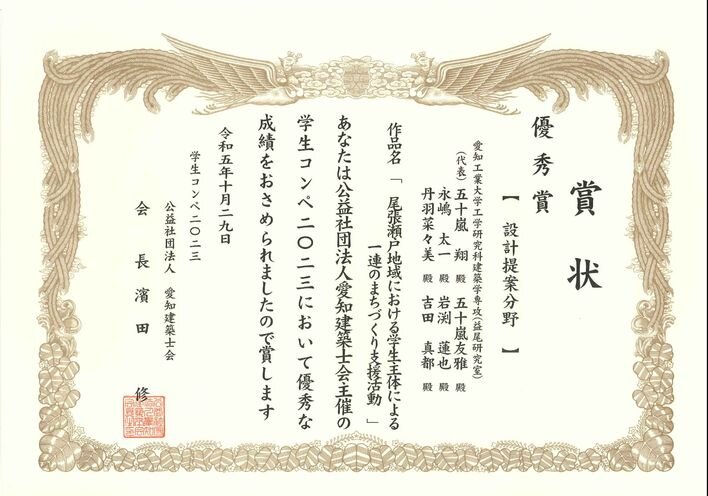 賞状
優秀賞
【設計提案分野】
愛知工業大学工学研究科建築学専攻(益尾研究室)
(代表)五十嵐 翔 殿 五十嵐友雅 殿
永嶋 太一 殿 岩渕 蓮也 殿
丹羽菜々美 殿 吉田 真都 殿
作品名「尾張瀬戸地域における学生主体による
一連のまちづくり支援活動」
あなたは公益社団法人愛知建築士会主催の
学生コンペ二〇二三において優秀な
成績をおさめられましたので賞します
令和五年十月二九日
学生コンペ二〇二三
公益社団法人 愛知建築士会
会長 濱田 修